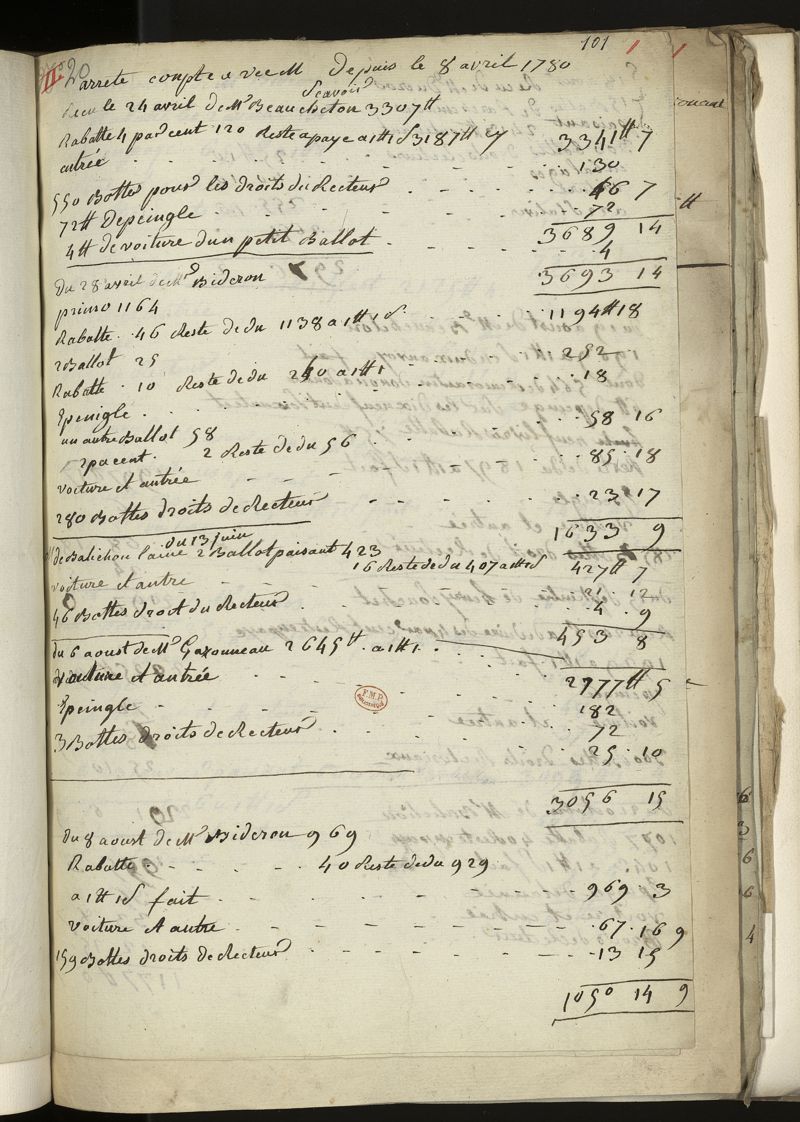 101 1 1
20
arrete conpte a vec M depuis le 8 avril 1780
Scavoir
Recu le 24 avril de Mr Beaucheton 3307 ₶
Rabatte 4 par cent 120 Reste a paye a 1 ₶ 1 s 3187 ₶ 3341 ₶ 7
antrée 130
550 Bottes pour les droits du Recteur 7
72 ₶ Depeingle 72
3689 14
4 ₶ de voiture dun petit Ballot 4
3693 14
Du 28 avril de Mr Bideron
primo 1164
Rabatte 46 Reste de du 1138 a 1 ₶ 1 s 1194 ₶ 18
2 Ballot 25
Rabatte 10 Reste de du 240 a 1 ₶ 1 252
Epeingle 18
un autre Ballot 58
2 pa cent 2 Reste de du 56 58 16
voiture et antrée 85 18
280 Bottes droits de Recteur 23 17
1633 9
du 13 juin
de Balichon laine 2 Ballot paisant 423
16 Reste de du 407 a 1 ₶ 1 s 427 ₶ 7
voiture et antre 21 12
46 Bottes droit du Recteur 4 9
453 8
du 6 aoust de Mr Gazonneau 2645 ₶ a 1 ₶ 1 2777 ₶ 5
voiture et antrée 182
Epeingle 72
3 Bottes droits de Recteur 25 10
3056 15
du 8 aoust de Mr Bideron 969
Rabatte 40 Reste de du 929
a 1 ₶ 1 s fait 969 3
voiture et autre 67 16 9
159 Bottes droits de Recteur 13 15
1050 14 9